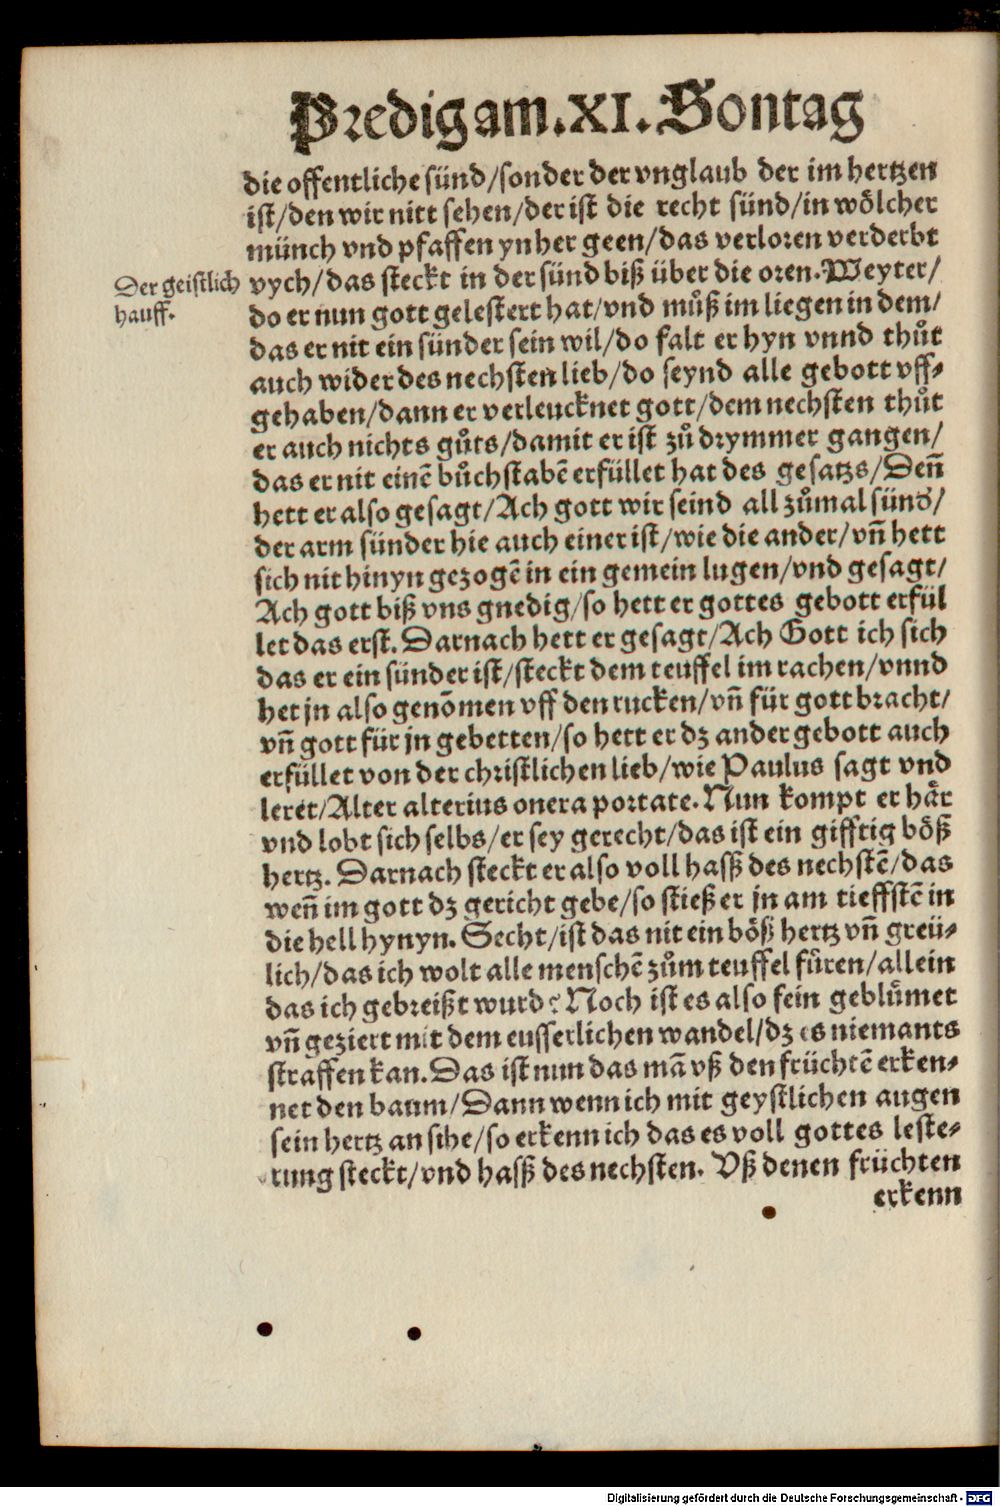 Predig am .XI. Sontag
die offentliche sünd/sonder der vnglaub der im hertzen
ist/den wir nitt sehen/der ist die recht sünd/in wölcher
münch vnd pfaffen ynher geen/das verloren verderbt
Der geistlich
hauff.
vych/das steckt in der sünd biß über die oren. Weyter/
do er nun gott gelestert hat/vnd můß im liegen in dem/
das er nit ein sünder sein wil/do falt er hyn vnnd thůt
auch wider des nechsten lieb/do seynd alle gebott vff-
gehaben/dann er verleucknet gott/dem nechsten thůt
er auch nichts gůts/damit er ist zů drymmer gangen/
das er nit einē bůchstabē erfüllet hat des gesatzs/Deñ
hett er also gesagt/Ach gott wir seind all zůmal sünd/
der arm sünder hie auch einer ist/wie die ander/vñ hett
sich nit hinyn gezogē in ein gemein lugen/vnd gesagt/
Ach gott biß vns gnedig/so hett er gottes gebott erfül
let das erst. Darnach hett er gesagt/Ach Gott ich sich
das er ein sünder ist/steckt dem teuffel im rachen/vnnd
het jn also genōmen vff den rucken/vñ für gott bracht/
vñ gott für jn gebetten/so hett er dz ander gebott auch
erfüllet von der christlichen lieb/wie Paulus sagt vnd
leret/Alter alterius onera portate. Nun kompt er hår
vnd lobt sich selbs/er sey gerecht/das ist ein gifftig böß
hertz. Darnach steckt er also voll hassß des nechstē/das
weñ im gott dz gericht gebe/so stieß er jn am tieffstē in
die hell hynyn. Secht/ist das nit ein böß hertz vñ greü-
lich/das ich wolt alle menschē zům teuffel füren/allein
das ich gebreißt wurd? Noch ist es also fein geblůmet
vñ geziert mit dem eusserlichen wandel/dz es niemants
straffen kan. Das ist nun das mā vß den früchtē erken-
net den baum/Dann wenn ich mit geystlichen augen
sein hertz an sihe/so erkenn ich das es voll gottes leste-
rung steckt/vnd hassß des nechsten. Vß denen früchten
erkenn
Digitalisierung gefördert durch die Deutsche Forschungsgemeinschaft - DFG